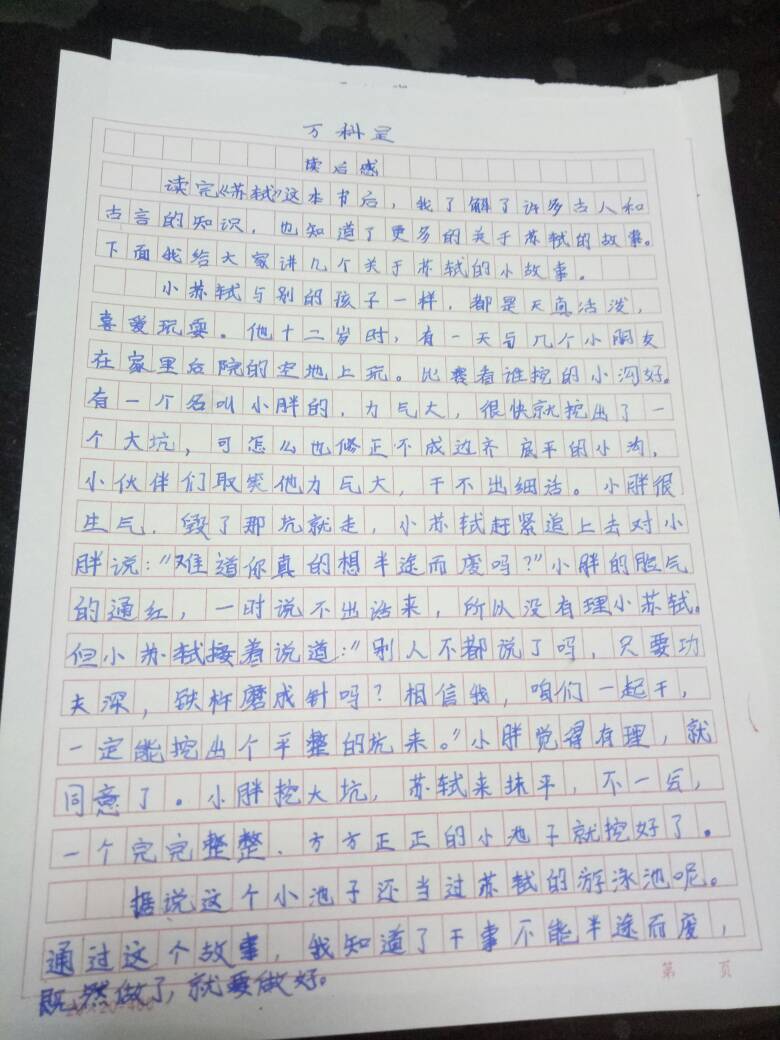 万科呈
读后感
读完《苏轼》这本书后，我了解了许多古人和
古言的知识，也知道了更多的关于苏轼的故事。
下面我给大家讲几个关于苏轼的小故事。
小苏轼与别的孩子一样，都是天真活泼，
喜爱玩耍。他十二岁时，有一天与几个小朋友
在家里后院的空地上玩。比赛看谁挖的小沟好。
有一个名叫小胖的，力气大，很快就挖出了一
个大坑，可怎么也修正不成边齐底平的小沟，
小伙伴们取笑他力气大，干不出细活。小胖很
生气，毁了那坑就走，小苏轼赶紧追上去对小
胖说："难道你真的想半途而废吗？"小胖的脸气
的通红，一时说不出话来，所以没有理小苏轼。
但小苏轼接着说道："别人不都说了吗，只要功
夫深，铁杵磨成针吗？相信我，咱们一起干，
一定能挖出个平整的坑来。"小胖觉得有理，就
同意了。小胖挖大坑，苏轼来抹平，不一会，
一个完完整整、方方正正的小池子就挖好了。
据说这个小池子还当过苏轼的游泳池呢。
通过这个故事，我知道了干事不能半途而废，
既然做了，就要做好。
第 页